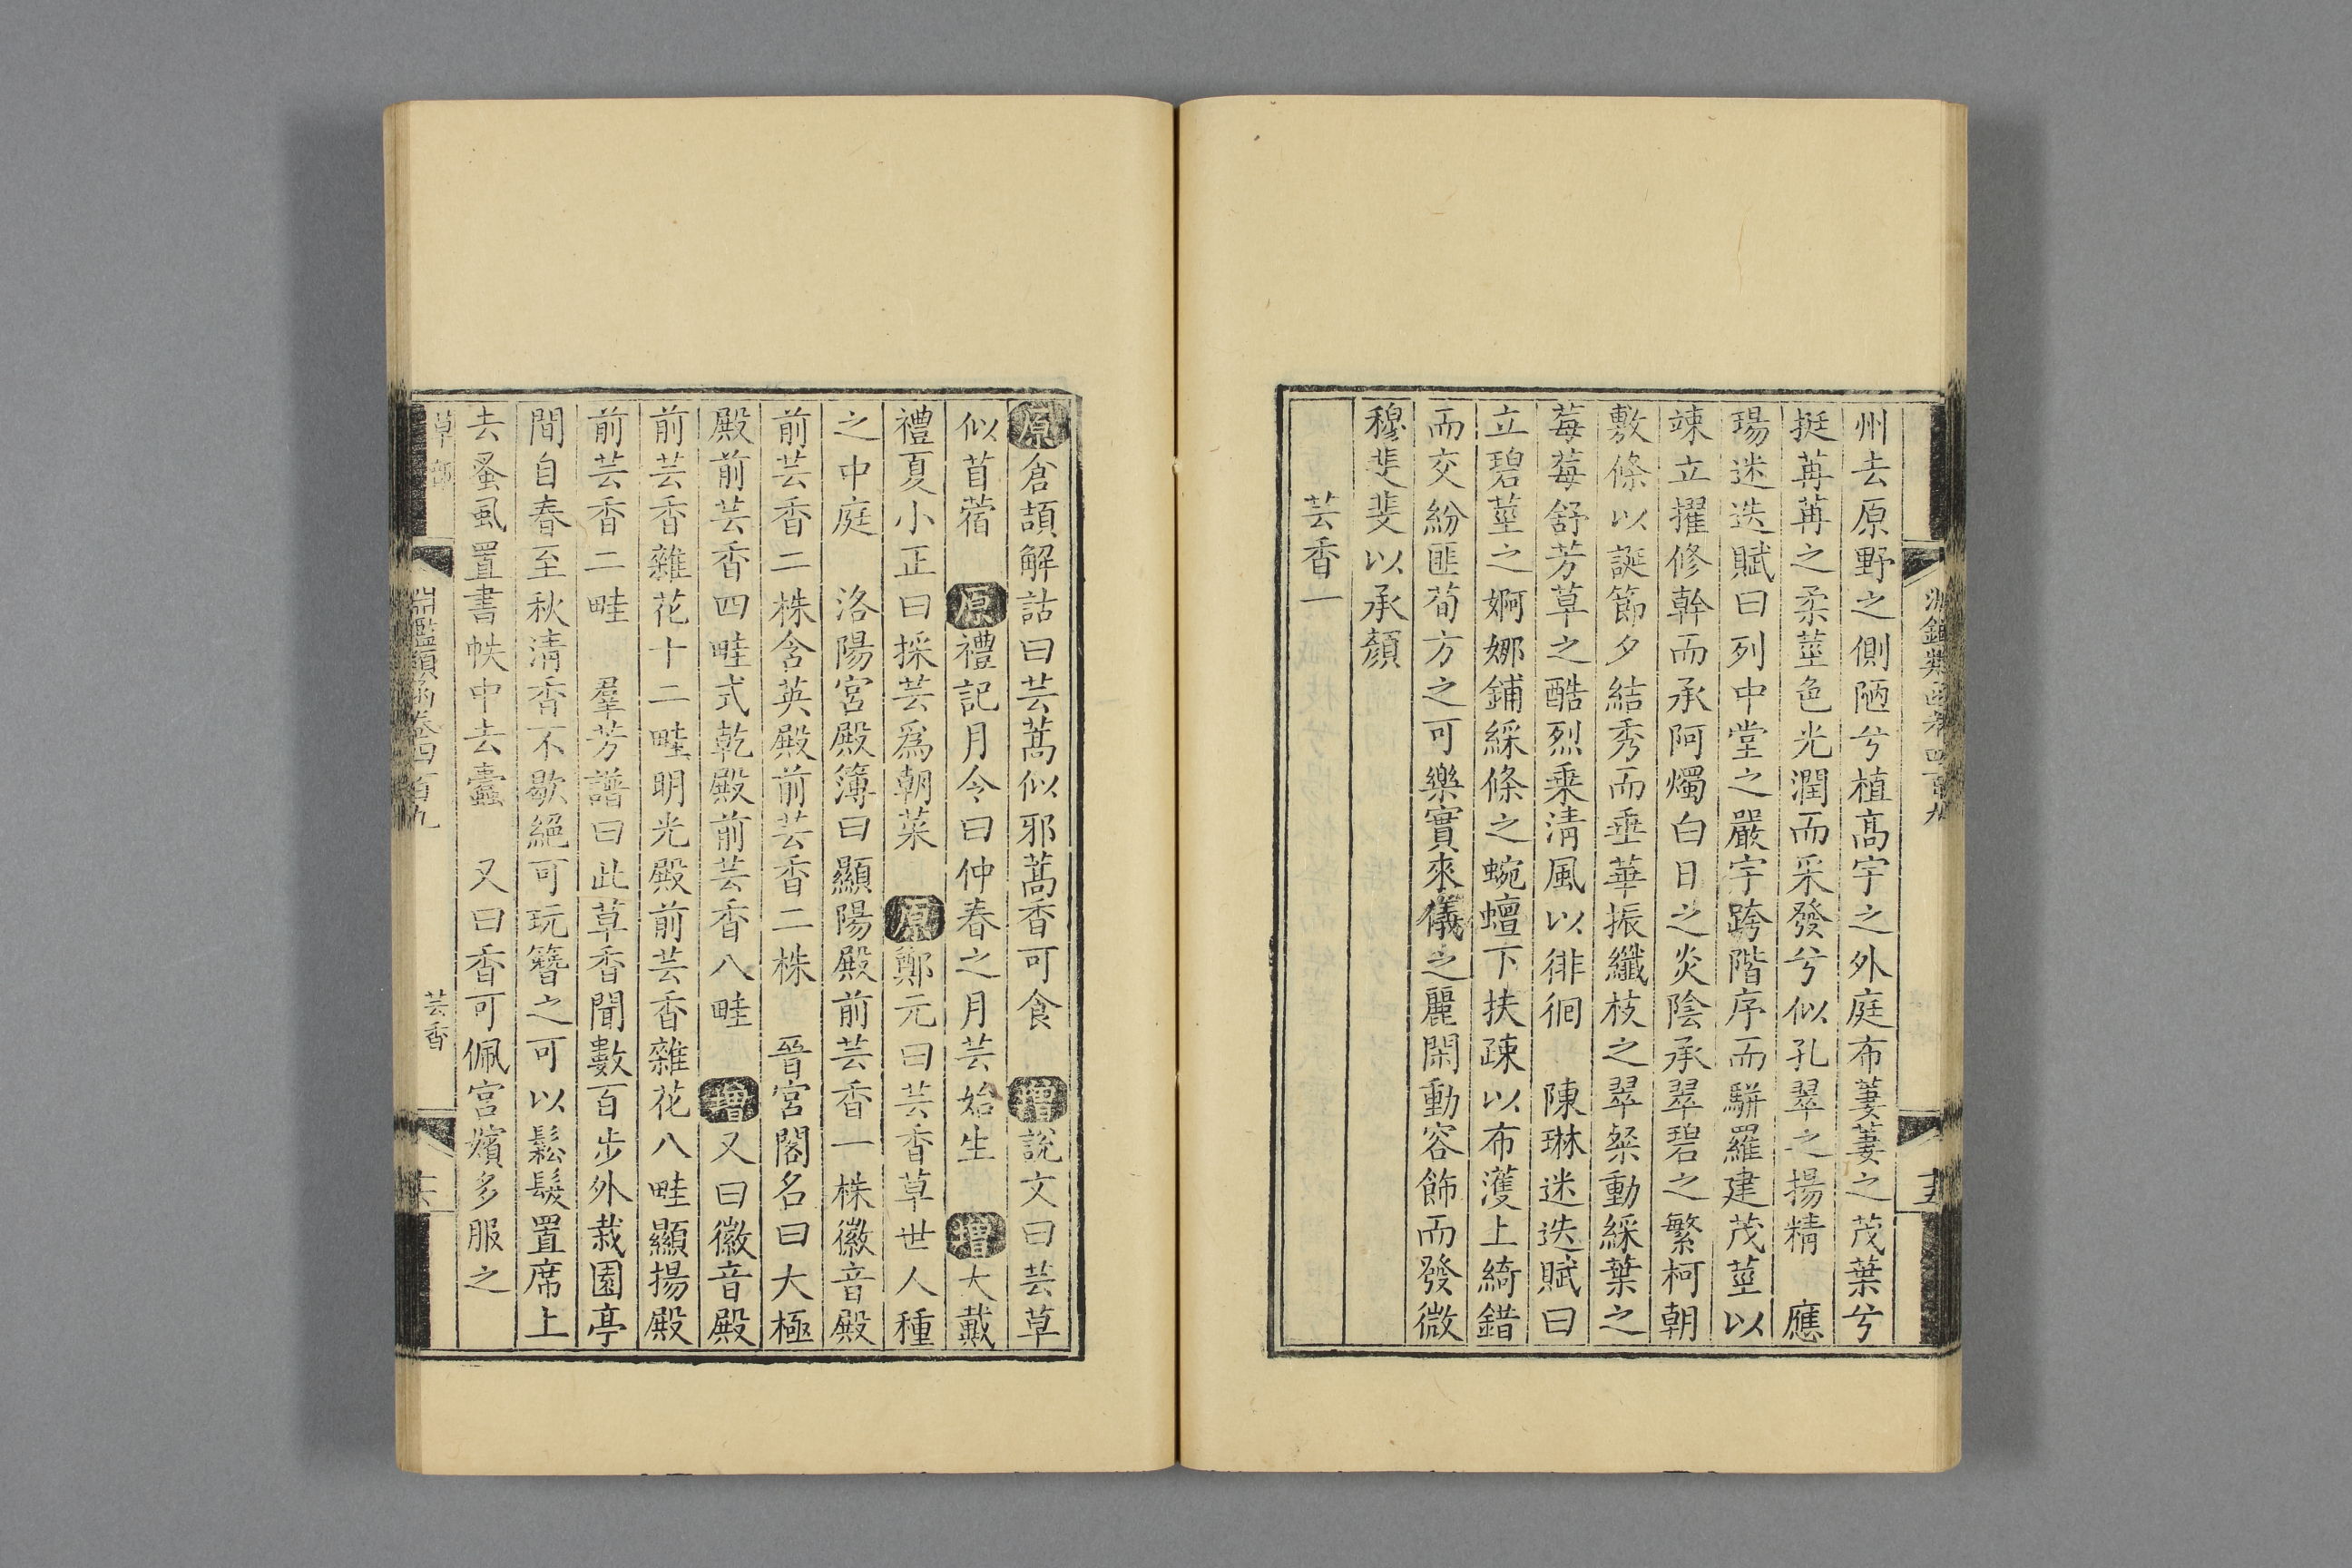 州去原野之側陋兮植高宇之外庭布萋萋之茂葉兮
挺苒苒之柔莖色光潤而采發兮似孔翠之揚精　應
瑒迷迭賦曰列中堂之嚴宇跨階序而駢羅建茂莖以
竦立擢修幹而承阿燭白日之炎陰承翠碧之繁柯朝
敷條以誕節夕結秀而垂華振纖枝之翠粲動綵葉之
莓莓舒芳草之酷烈乗清風以徘徊　陳琳迷迭賦曰
立碧莖之婀娜鋪綵條之蜿蟺下扶疎以布濩上綺錯
而交紛匪荀方之可樂實來儀之麗閑動容飾而發微
穆斐斐以承顏
芸香一
淵鑑類函卷四百九
十五
原倉頡解詁曰芸蒿似邪蒿香可食　增說文曰芸草
似苜蓿　原禮記月令曰仲春之月芸始生　增大戴
禮夏小正曰採芸爲朝菜　原鄭元曰芸香草世人種
之中庭　洛陽宮殿簿曰顯陽殿前芸香一株徽音殿
前芸香二株含英殿前芸香二株　晉宮閣名曰大極
殿前芸香四畦式乾殿前芸香八畦　增又曰徽音殿
前芸香雜花十二畦明光殿前芸香雜花八畦顯揚殿
前芸香二畦　羣芳譜曰此草香聞數百步外栽園亭
間自春至秋清香不歇絕可玩簪之可以鬆髮置席上
去蚤虱置書帙中去蠹　又曰香可佩宮嬪多服之
草部
淵鑑類函卷四百九
芸香
十六